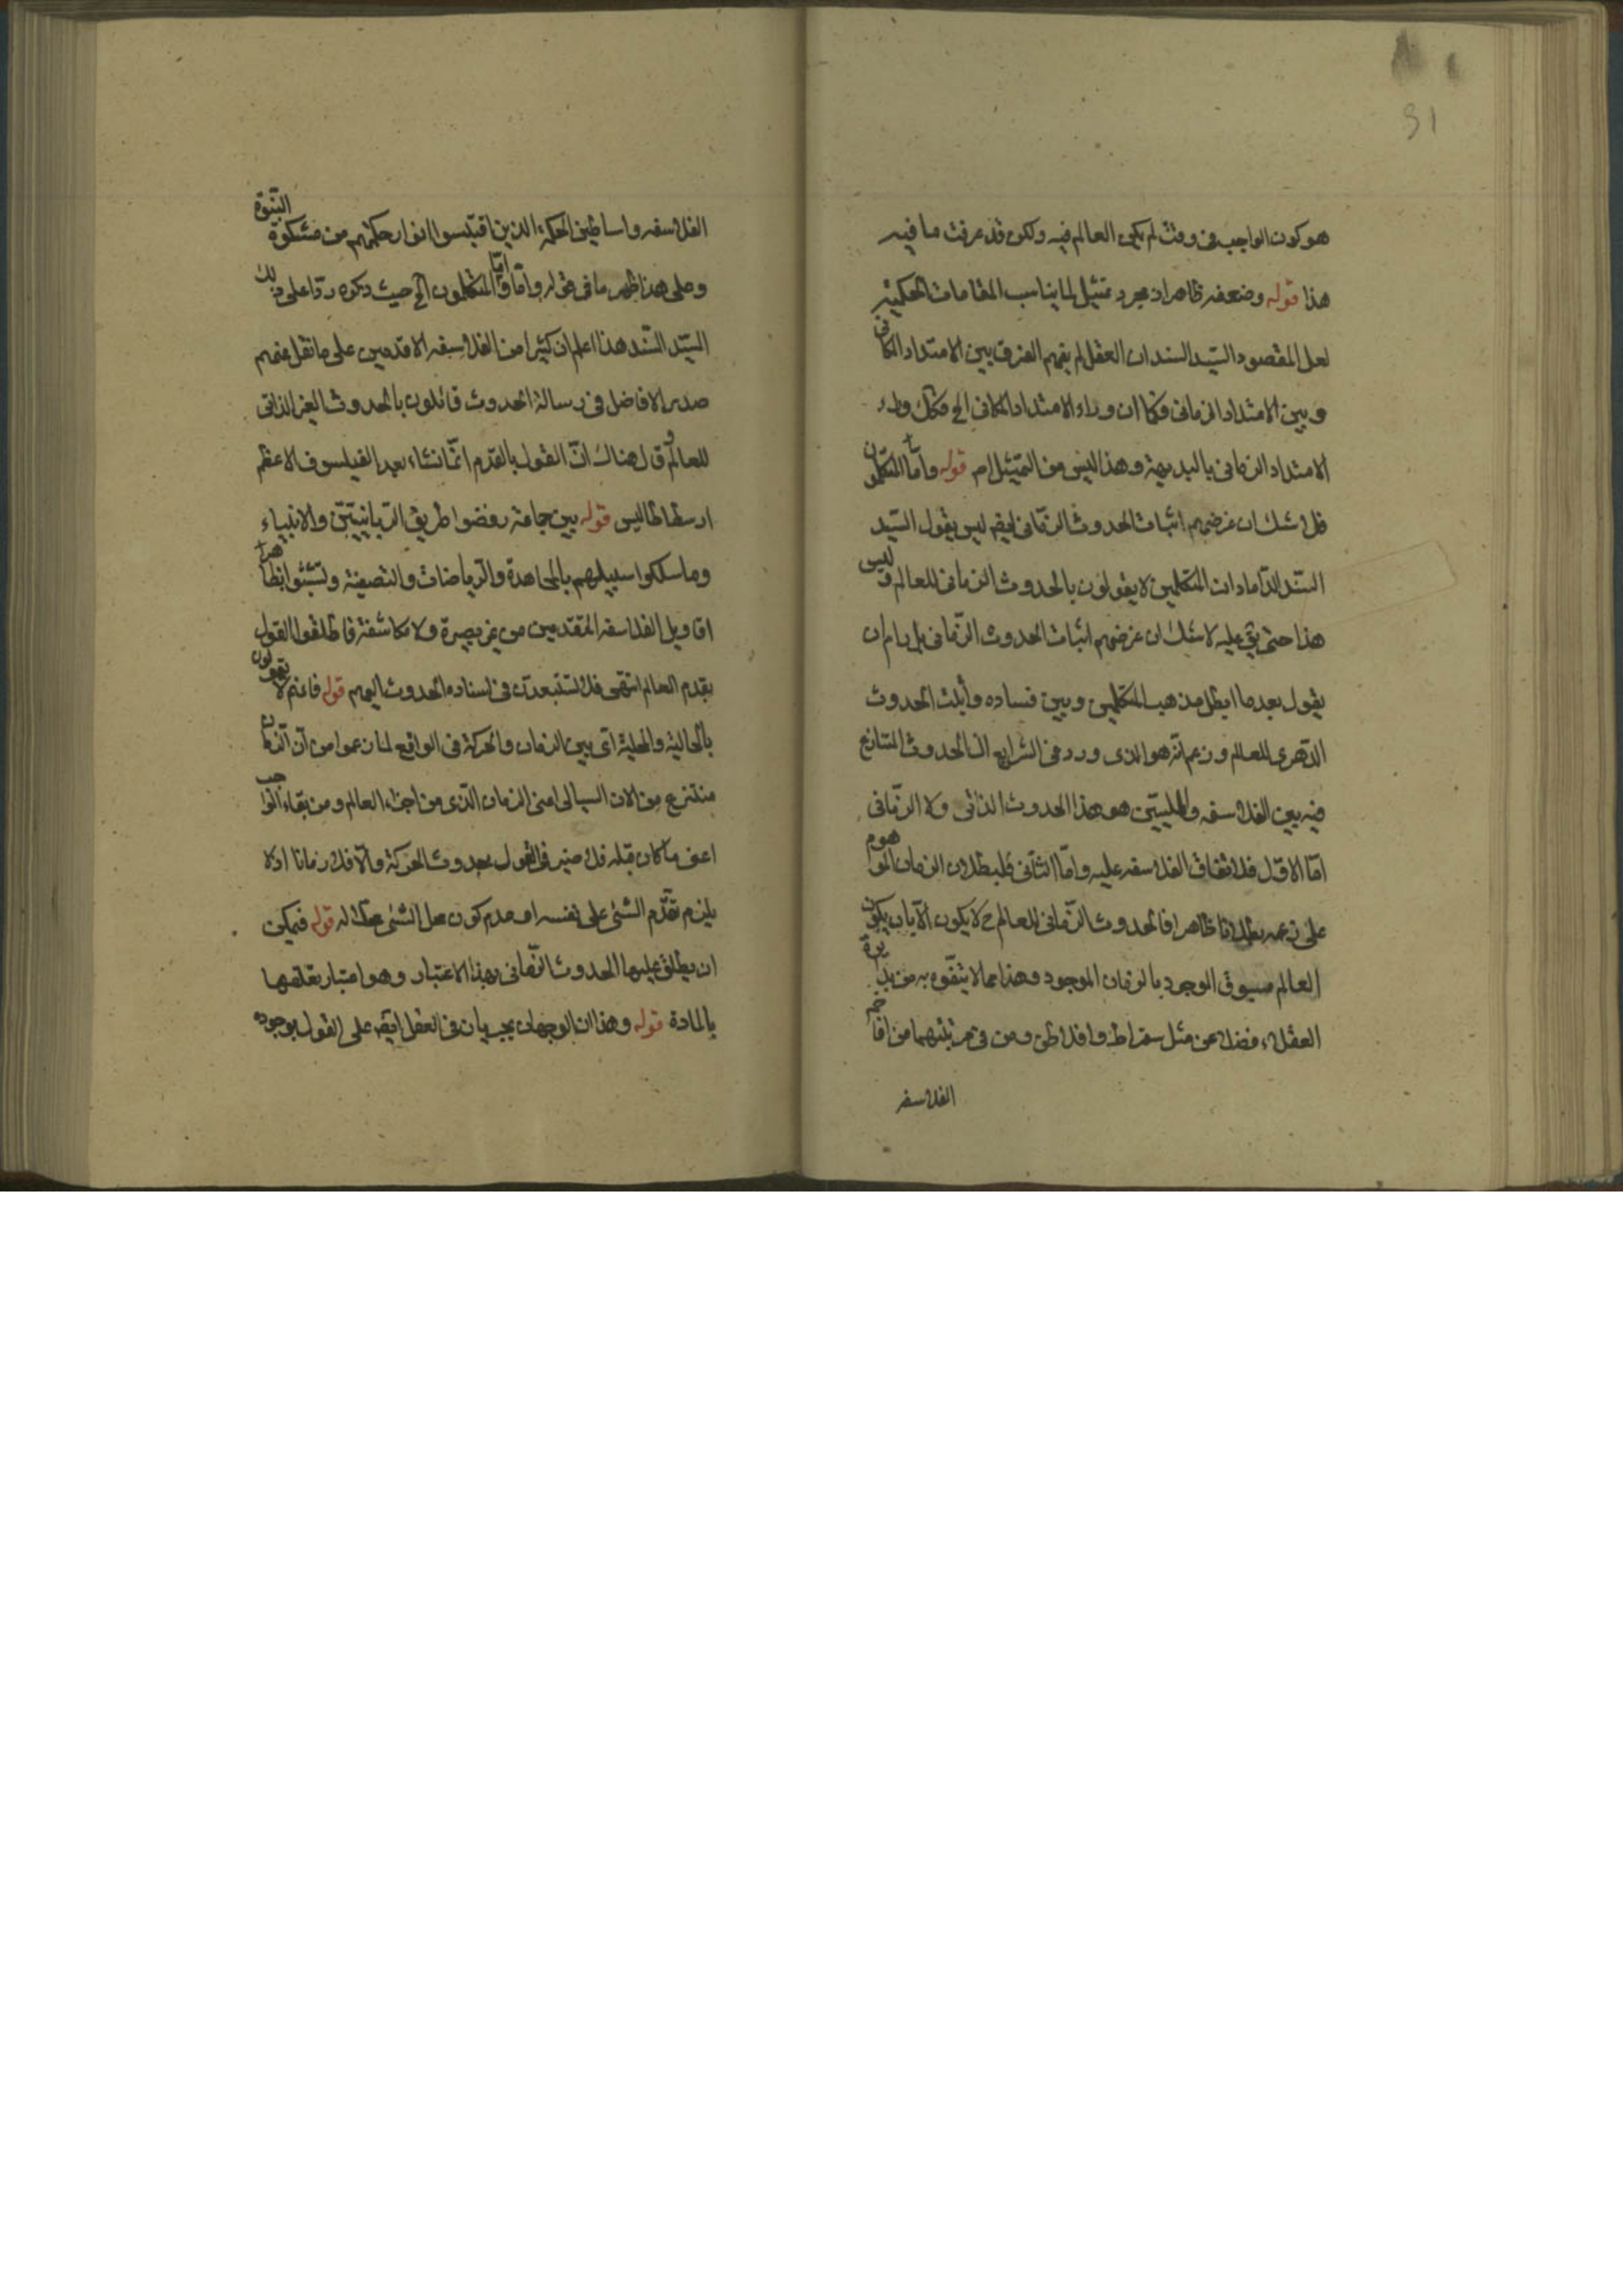 31
هو كون الواجب فى وقت لم يكن العالم فيه ولكن قد عرفت ما فيه
هذا قوله وضعفه ظاهر اذ مجرد تمثيل لما يناسب المقامات الحكمية
لعل المقصود السيد السند ان العقل لم يفهم الفرق بين الامتداد المكانى
و بين الامتداد الزمانى فكما ان وراء الامتداد المكانى الخ فكك وراء
الامتداد الزمانى بالبديهة وهذا ليس من التمثيل ام قوله واما المتكلمون
فلا شك ان غرضهم اثبات الحدوث الزمانى ايضا ليس يقول السيد
السند الداماد ان المتكلمين لا يقولون بالحدوث الزمانى للعالم وليس
هذا حتى يق عليه لا شك ان غرضهم اثبات الحدوث الزمانى بل رام ان
يقول بعد ما ابطل مذهب المتكلمين و بين فساده واثبت الحدوث
الدهرى للعالم وزعم انه هو الذى ورد فى الشرايع ان الحدوث المتنازع
فيه بين الفلاسفه والمليين هو هذا الحدوث لا الذاتى ولا الزمانى
اما الاول فلاتفاق الفلاسفه عليه واما الثانى فلبطلان الزمان الموهوم
على زعمه بطلانا ظاهرا فالحدوث الزمانى للعالم ح لا يكون الا بان يكون
العالم مسبوق الوجود بالزمان الموجود وهذا مما لا يتفوه به من
العقلاء فضلا عن مثل سقراط وافلاطن ومن فى مرتبتهما من افاخم
الفلاسفه
الفلاسفه واساطين الحكمة الذين اقتبسوا انوار حكمتهم من مشكوة النبوة
وعلى هذا ظهر ما فى قوله واما المتكلمون الخ حيث ذكره ردا على ذلك
السيد السند هذا اعلم ان كثيرا من الفلاسفه الاقدمين على ما نقل عنهم
صدر الافاضل فى رسالة الحدوث قائلون بالحدوث الغير الذاتى
للعالم وقال هناك ان القول بالقدم انما نشاء بعد الفيلسوف الاعظم
ارسطاطاليس قوله بين جماعة رفضوا طريق الربانيين والانبياء
وما سلكوا سبيلهم بالمجاهدة والرياضات والتصفية وتشبثوا بظاهر
اقاويل الفلاسفه المتقدمين من غير بصيرة ولا مكاشفة فاطلقوا القول
بقدم العالم انتهى فلا تستبعدن فى اسناده الحدوث اليهم قوله فانهم لا يقولون
بالحالية والمحلية اى بين الزمان والحركة فى الواقع لما زعموا من ان الزمان
منتزع من الان السيال اعنى الزمان الذى من اجزاء العالم ومن بقاء الواجب
اعنى ما كان قبله فلا ضير فى القول بحدوث الحركة والا فلا زمانا اولا
يلزم تقدم الشئ على نفسه او عدم كون محل الشئ محلا له قوله فيمكن
ان يطلق عليها الحدوث الزمانى بهذا الاعتبار وهو اعتبار تعلقها
بالمادة قوله وهذان الوجهان يجريان فى العقل ايضا على القول بوجوده